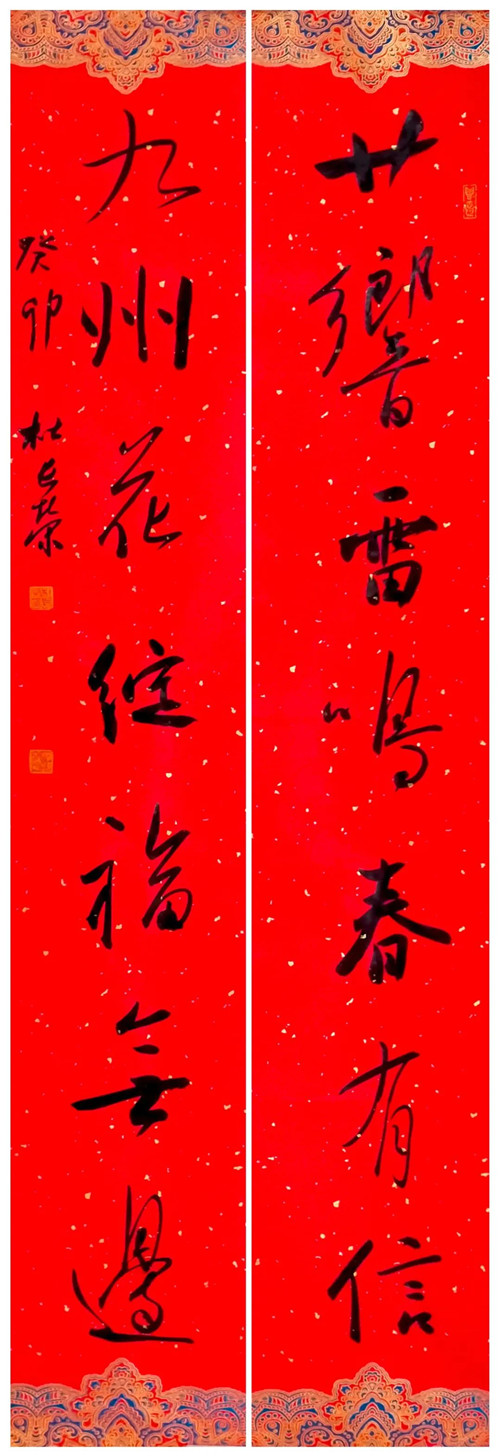 廿響雷鳴春有信
九州花綻福無邊
癸卯 杜長榮